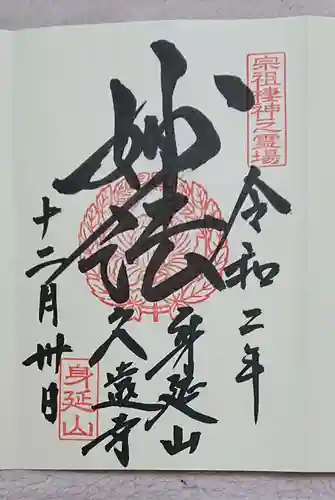 宗祖棲神之霊場
令和二年
妙法
身延山
久遠寺
十二月卅日
身延山